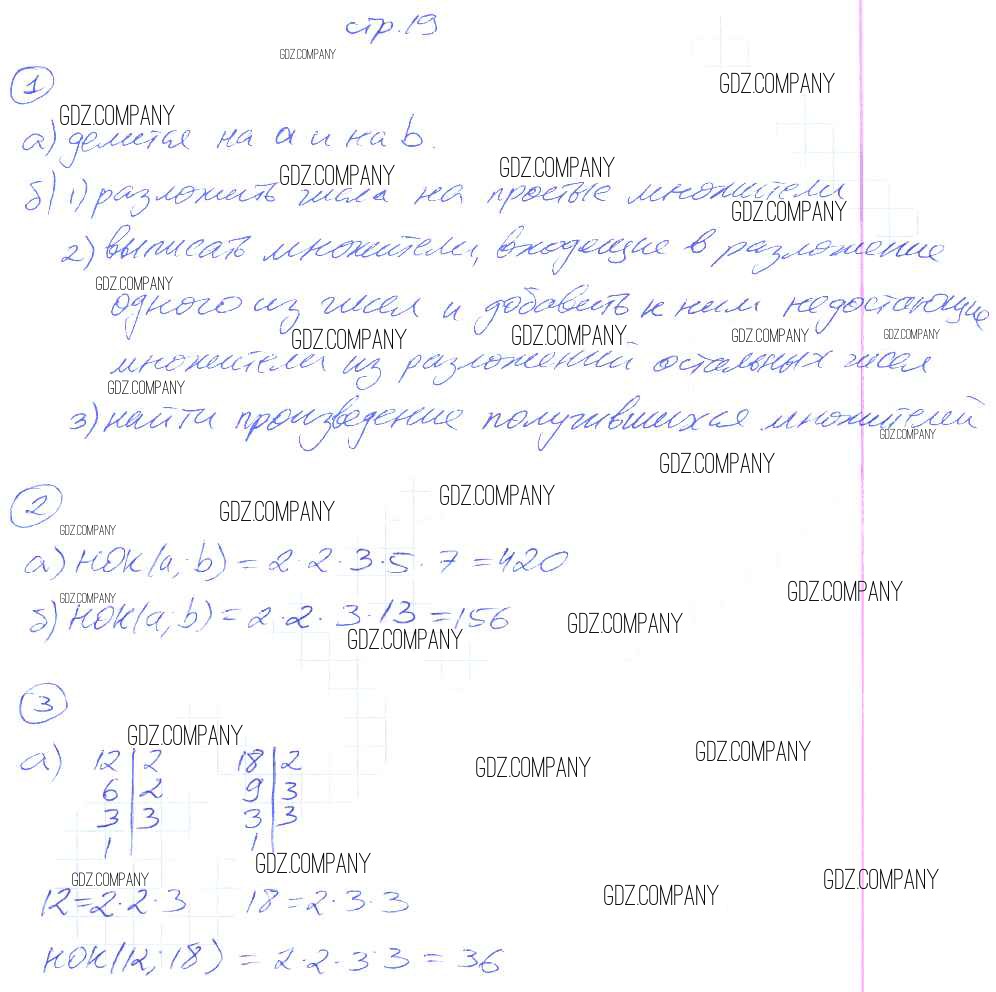 стр. 19
GDZ.COMPANY
1
GDZ.COMPANY
GDZ.COMPANY
а) делится на a и на b.
GDZ.COMPANY
GDZ.COMPANY
б) 1) разложить числа на простые множители
GDZ.COMPANY
2) выписать множители, входящие в разложение
GDZ.COMPANY
одного из чисел и добавить к ним недостающие
GDZ.COMPANY
GDZ.COMPANY
GDZ.COMPANY
GDZ.COMPANY
множители из разложений остальных чисел
GDZ.COMPANY
3) найти произведение получившихся множителей
GDZ.COMPANY
GDZ.COMPANY
2
GDZ.COMPANY
GDZ.COMPANY
GDZ.COMPANY
а) НОК(a; b) = 2·2·3·5·7 = 420
GDZ.COMPANY
GDZ.COMPANY
б) НОК(a; b) = 2·2·3·13 = 156
GDZ.COMPANY
GDZ.COMPANY
3
GDZ.COMPANY
GDZ.COMPANY
GDZ.COMPANY
а) 12|2 18|2
6|2 9|3
3|3 3|3
1| 1|
GDZ.COMPANY
GDZ.COMPANY
GDZ.COMPANY
GDZ.COMPANY
12=2·2·3 18=2·3·3
НОК(12; 18) = 2·2·3·3 = 36